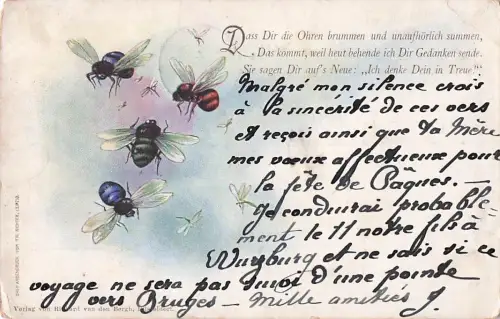 Dass Dir die Ohren brummen und unaufhörlich summen,
Das kommt, weil heut behende ich Dir Gedanken sende.
Sie sagen Dir auf's Neue: „Ich denke Dein in Treue!"
Malgré mon silence crois
à la sincérité de ces vers
et reçois ainsi que ta Mère
mes vœux affectueux pour
la fête de Pâques. —
Je conduirai probable
ment le 11 notre fils à
Wurzburg et ne sais si ce
voyage ne sera pas suivi d'une pointe
vers Bruges — Mille amitiés
Verlag von Richard van den Bergh, Düsseldorf.